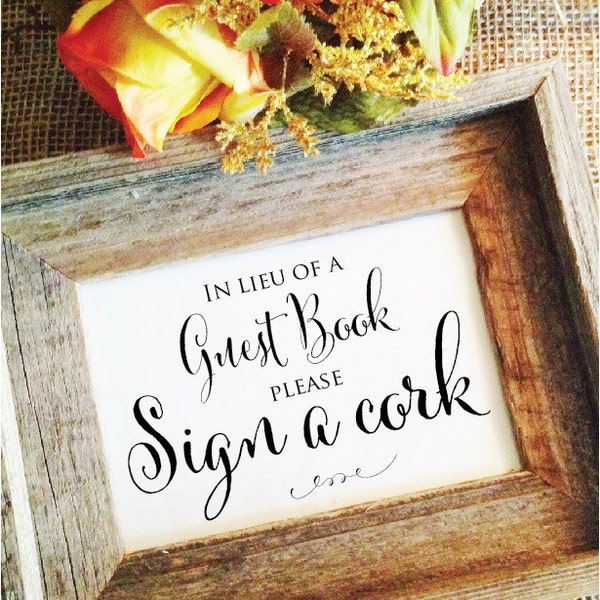 In lieu of a
Guest Book
please
Sign a cork